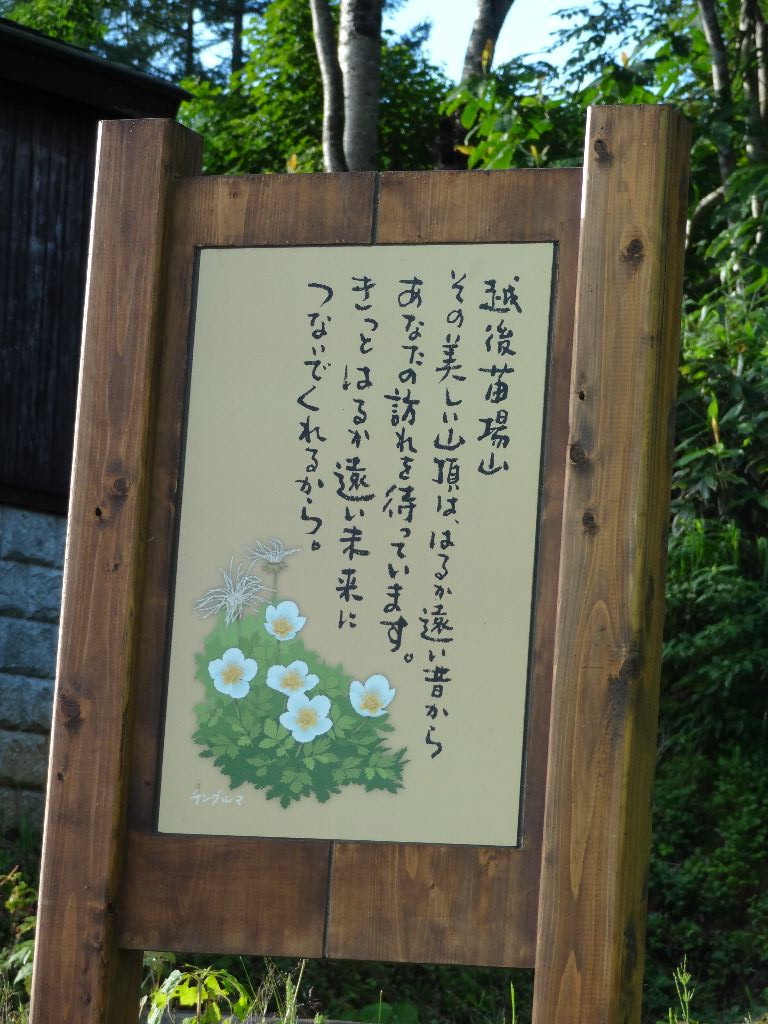 越後苗場山
その美しい山頂は、はるか遠い昔から
あなたの訪れを待っています。
きっとはるか遠い未来に
つないでくれるから。
チングルマ